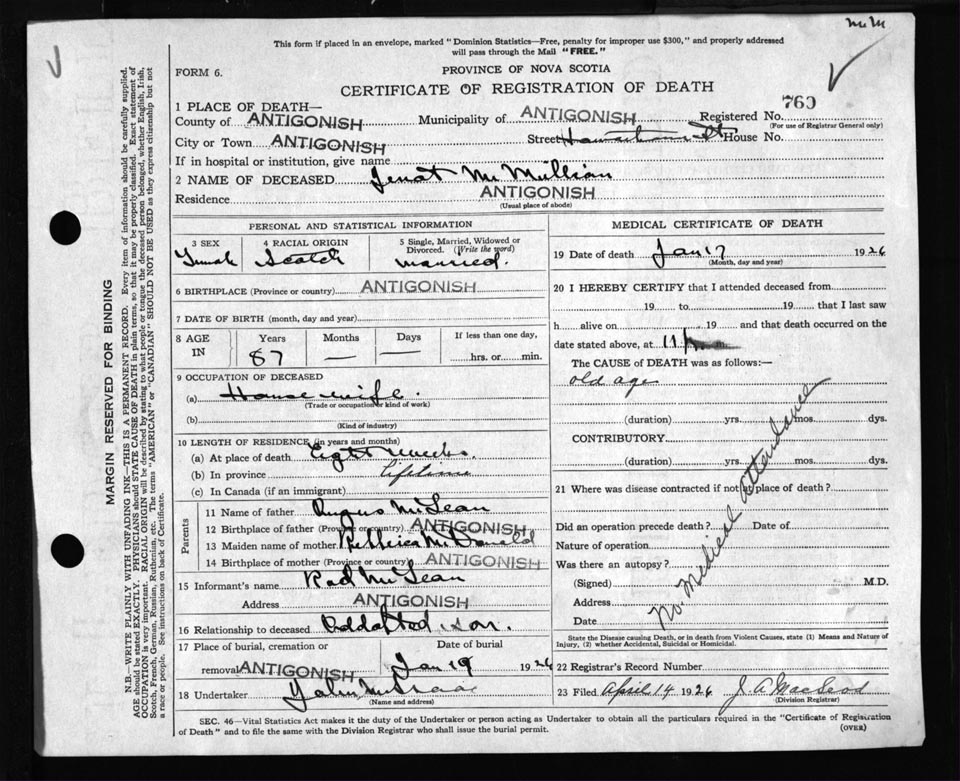 McM
This form if placed in an envelope, marked "Dominion Statistics—Free, penalty for improper use $300," and properly addressed
will pass through the Mail "FREE."
FORM 6.
PROVINCE OF NOVA SCOTIA
CERTIFICATE OF REGISTRATION OF DEATH
760
1 PLACE OF DEATH—
County of ANTIGONISH Municipality of ANTIGONISH Registered No.
(For use of Registrar General only)
City or Town ANTIGONISH Street St House No.
If in hospital or institution, give name
2 NAME OF DECEASED Jenat McMillian
Residence ANTIGONISH
(Usual place of abode)
PERSONAL AND STATISTICAL INFORMATION
3 SEX 4 RACIAL ORIGIN 5 Single, Married, Widowed or Divorced. (Write the word)
Female Scotch married.
6 BIRTHPLACE (Province or country) ANTIGONISH
7 DATE OF BIRTH (month, day and year)
8 AGE IN Years Months Days If less than one day,
87 — — hrs. or min.
9 OCCUPATION OF DECEASED
(a) House wife.
(Trade or occupation or kind of work)
(b)
(Kind of industry)
10 LENGTH OF RESIDENCE (in years and months)
(a) At place of death Eight weeks
(b) In province Lifetime
(c) In Canada (if an immigrant)
Parents
11 Name of father Angus McLean
12 Birthplace of father (Province or country) ANTIGONISH
13 Maiden name of mother McDonald
14 Birthplace of mother (Province or country) ANTIGONISH
15 Informant's name Rod McLean
Address ANTIGONISH
16 Relationship to deceased Addapted son.
17 Place of burial, cremation or Date of burial
removal ANTIGONISH Jan 19 1926
18 Undertaker John McIsaac
(Name and address)
MEDICAL CERTIFICATE OF DEATH
19 Date of death Jan 17 1926
(Month, day and year)
20 I HEREBY CERTIFY that I attended deceased from
19 to 19 that I last saw
h alive on 19 and that death occurred on the
date stated above, at 11 m.
The CAUSE of DEATH was as follows:—
old age
(duration) yrs. mos. dys.
CONTRIBUTORY
(duration) yrs. mos. dys.
No Medical Attendance
21 Where was disease contracted if not at place of death?
Did an operation precede death? Date of
Nature of operation
Was there an autopsy?
(Signed) M.D.
Address
Date
State the Disease causing Death, or in death from Violent Causes, state (1) Means and Nature of
Injury, (2) whether Accidental, Suicidal or Homicidal.
22 Registrar's Record Number
23 Filed April 14 1926 J. A. MacLeod
(Division Registrar)
SEC. 46—Vital Statistics Act makes it the duty of the Undertaker or person acting as Undertaker to obtain all the particulars required in the "Certificate of Registration
of Death" and to file the same with the Division Registrar who shall issue the burial permit. (OVER)
MARGIN RESERVED FOR BINDING
N.B.—WRITE PLAINLY WITH UNFADING INK—THIS IS A PERMANENT RECORD. Every item of information should be carefully supplied.
AGE should be stated EXACTLY. PHYSICIANS should STATE CAUSE OF DEATH in plain terms, so that it may be properly classified. Exact statement of
OCCUPATION is very important. RACIAL ORIGIN will be described by stating to what people or tongue the deceased person belonged, whether English, Irish,
Scotch, French, German, Russian, Ruthenian, etc. The terms "AMERICAN" or "CANADIAN" SHOULD NOT BE USED as they express citizenship but not
a race or people. See instructions on back of Certificate.